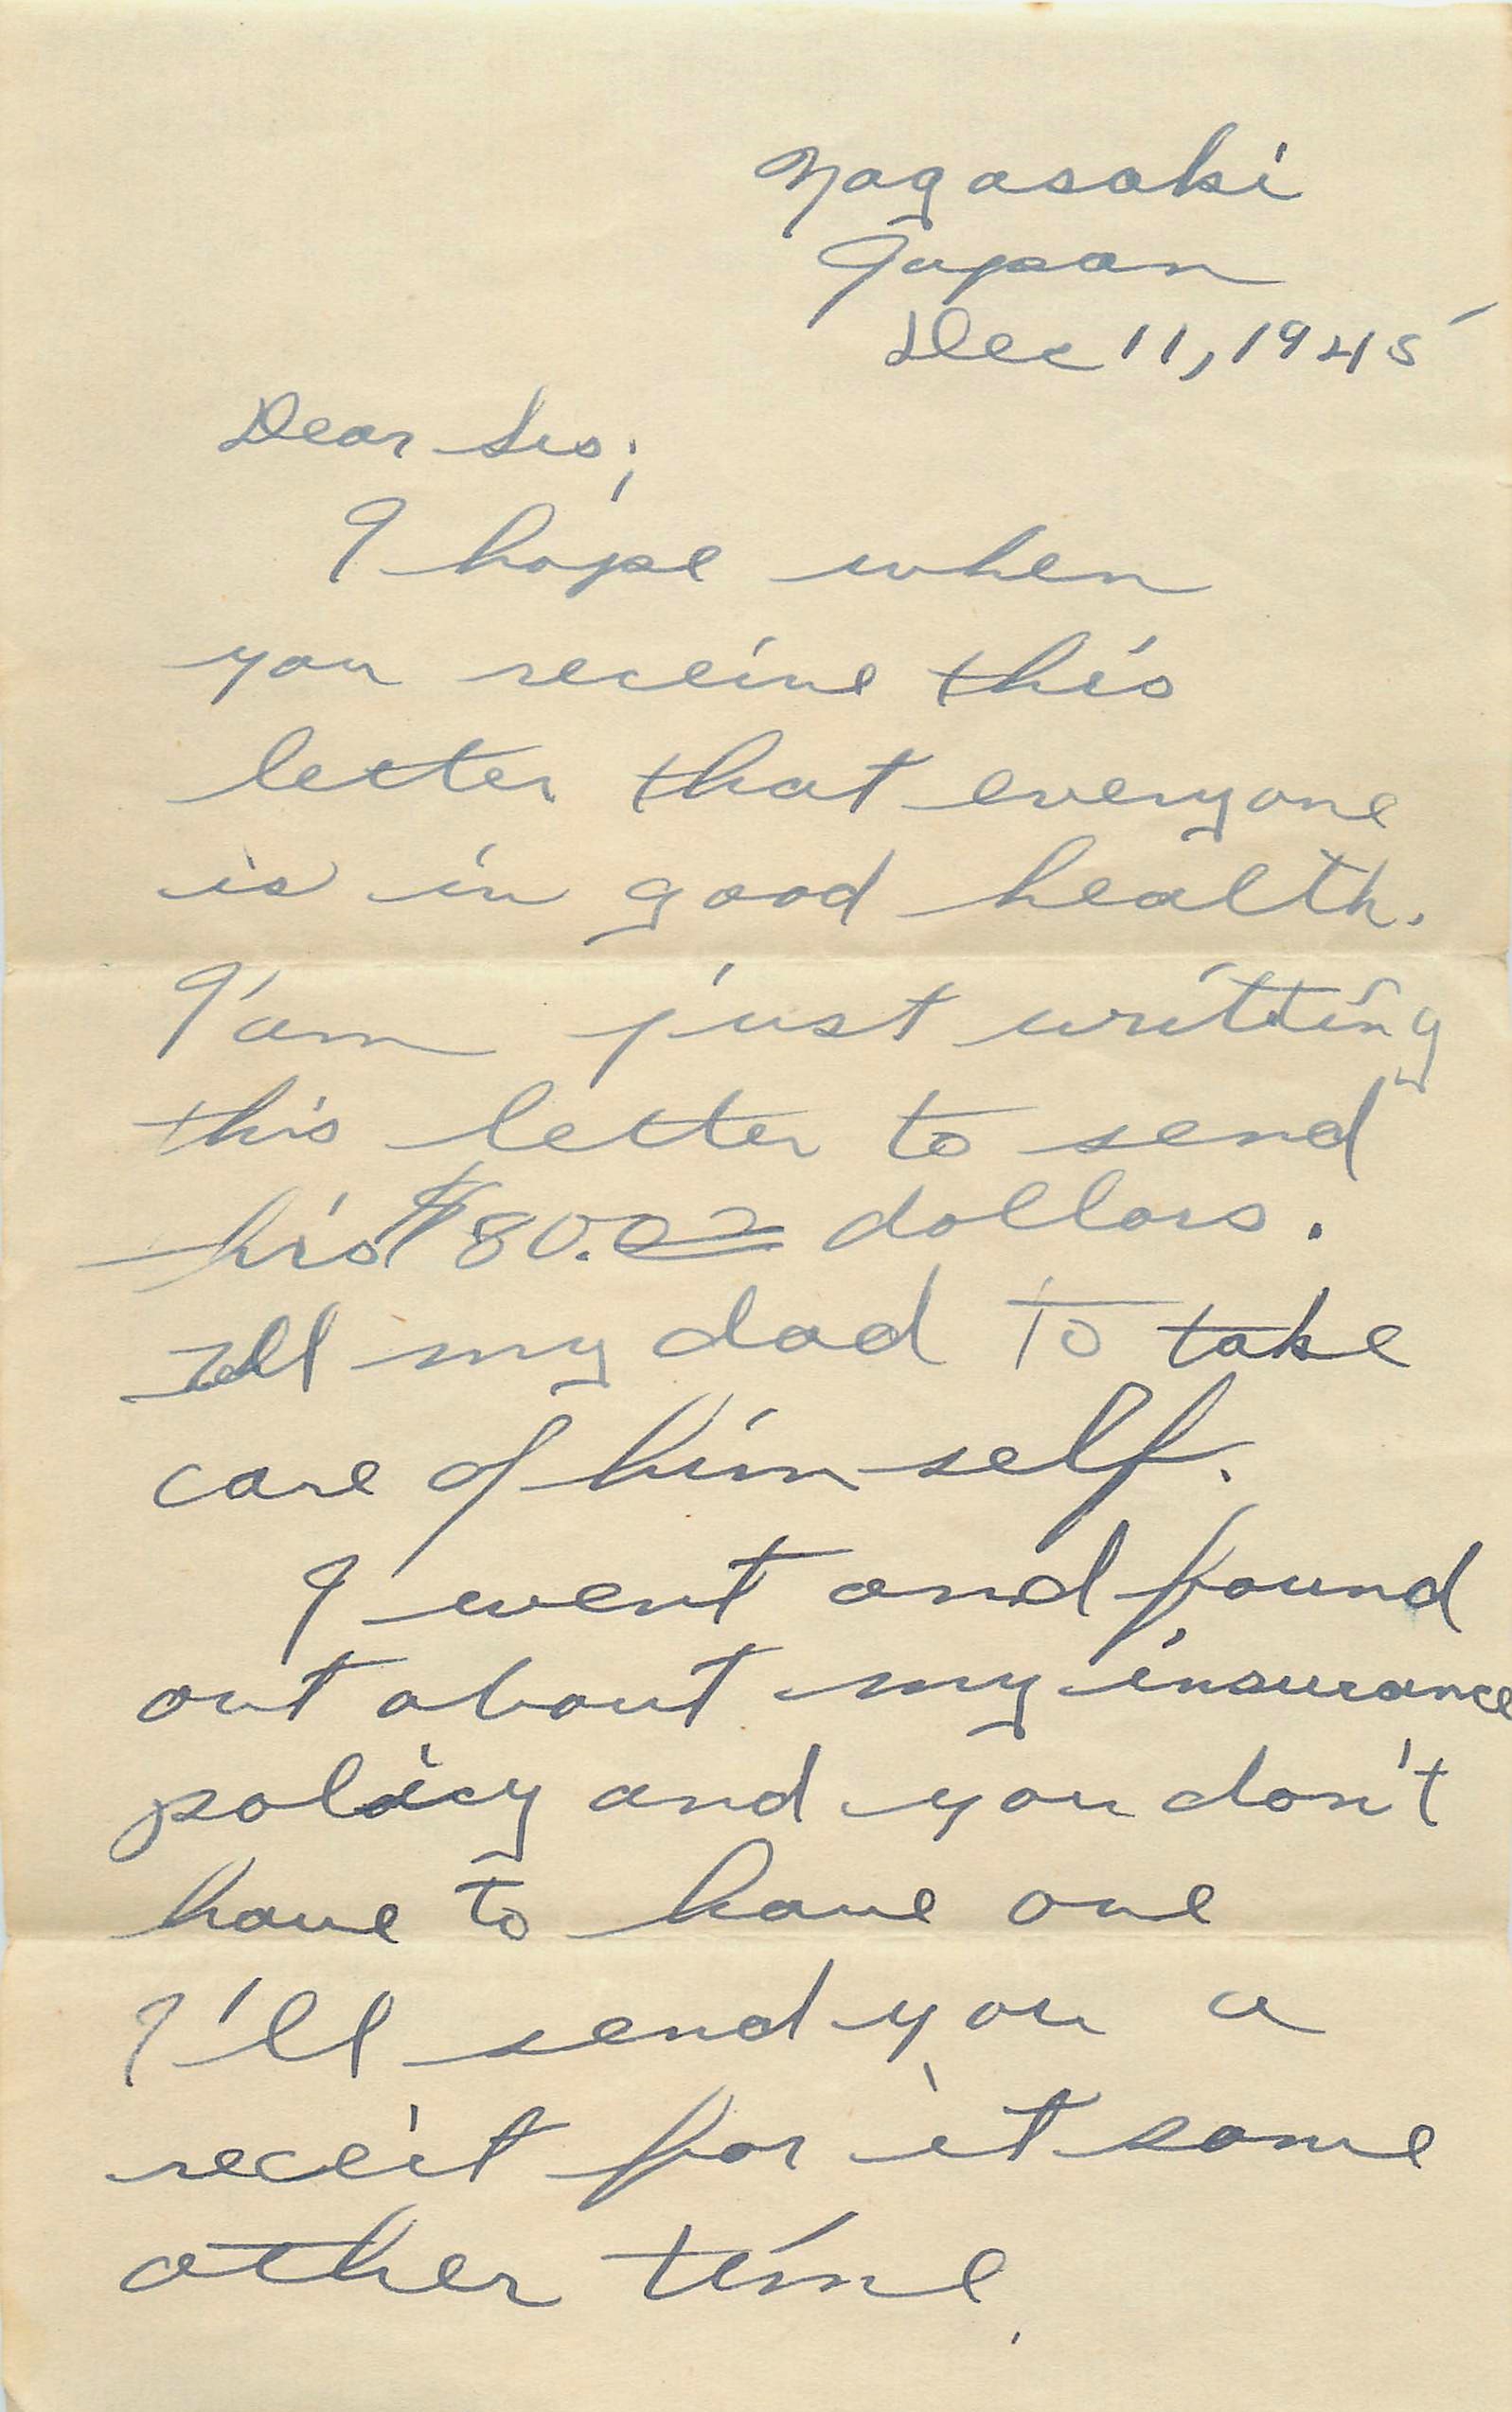 Nagasaki
Japan
Dec 11, 1945
Dear Sis;
I hope when
you receive this
letter that everyone
is in good health.
I'am just writting
this letter to send
his $80.00 dollars.
Tell my dad to take
care of him self.
I went and found
out about my insurance
policy and you don't
have to have one
I'll send you a
receit for it some
other time.